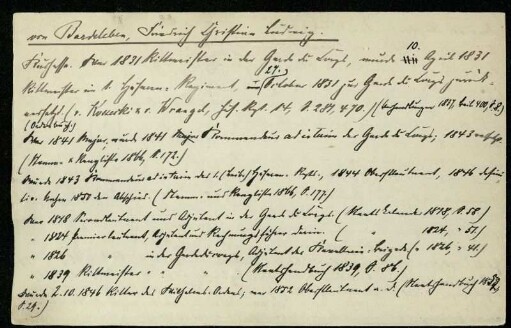 von Bardeleben, Friedrich Christian Ludwig.
Kurhesse. War 1831 Rittmeister in der Garde du Corps, wurde 10. April 1831
Rittmeister im 1. Husaren-Regiment, 27. October 1831 zur Garde du Corps zurück-
versetzt (v. Kossecki u. v. Wrangel, Hus. Rgt. 14, S. 281, 470.)
War 1841 Major, wurde 1841 Kommandeur ad interim der Garde du Corps; 1843
(Stamm- u. Rangliste 1866, S. 172.)
Wurde 1843 Kommandeur ad interim des 1. Husaren-Regts., 1844 Oberstleutnant, 1846
den Abschied. (Stamm- und Rangliste 1866, S. 177)
War 1818 Secondleutnant und Adjutant in der Garde du Corps. ( 1818, S. 58.)
" 1824 Premierleutnant, Adjutant und Rechnungsführer darin. ( " 1824, " 57.)
" 1826 " in der Garde du Corps, Adjutant der Kavallerie-Brigade (" 1826, " 41.)
" 1839 Rittmeister " " " (Staatshandbuch 1839, S. 86.)
Wurde 2.10.1846 Ritter des Wilhelms-Ordens; war 1852 Oberstleutnant a. D. (Staatshandbuch